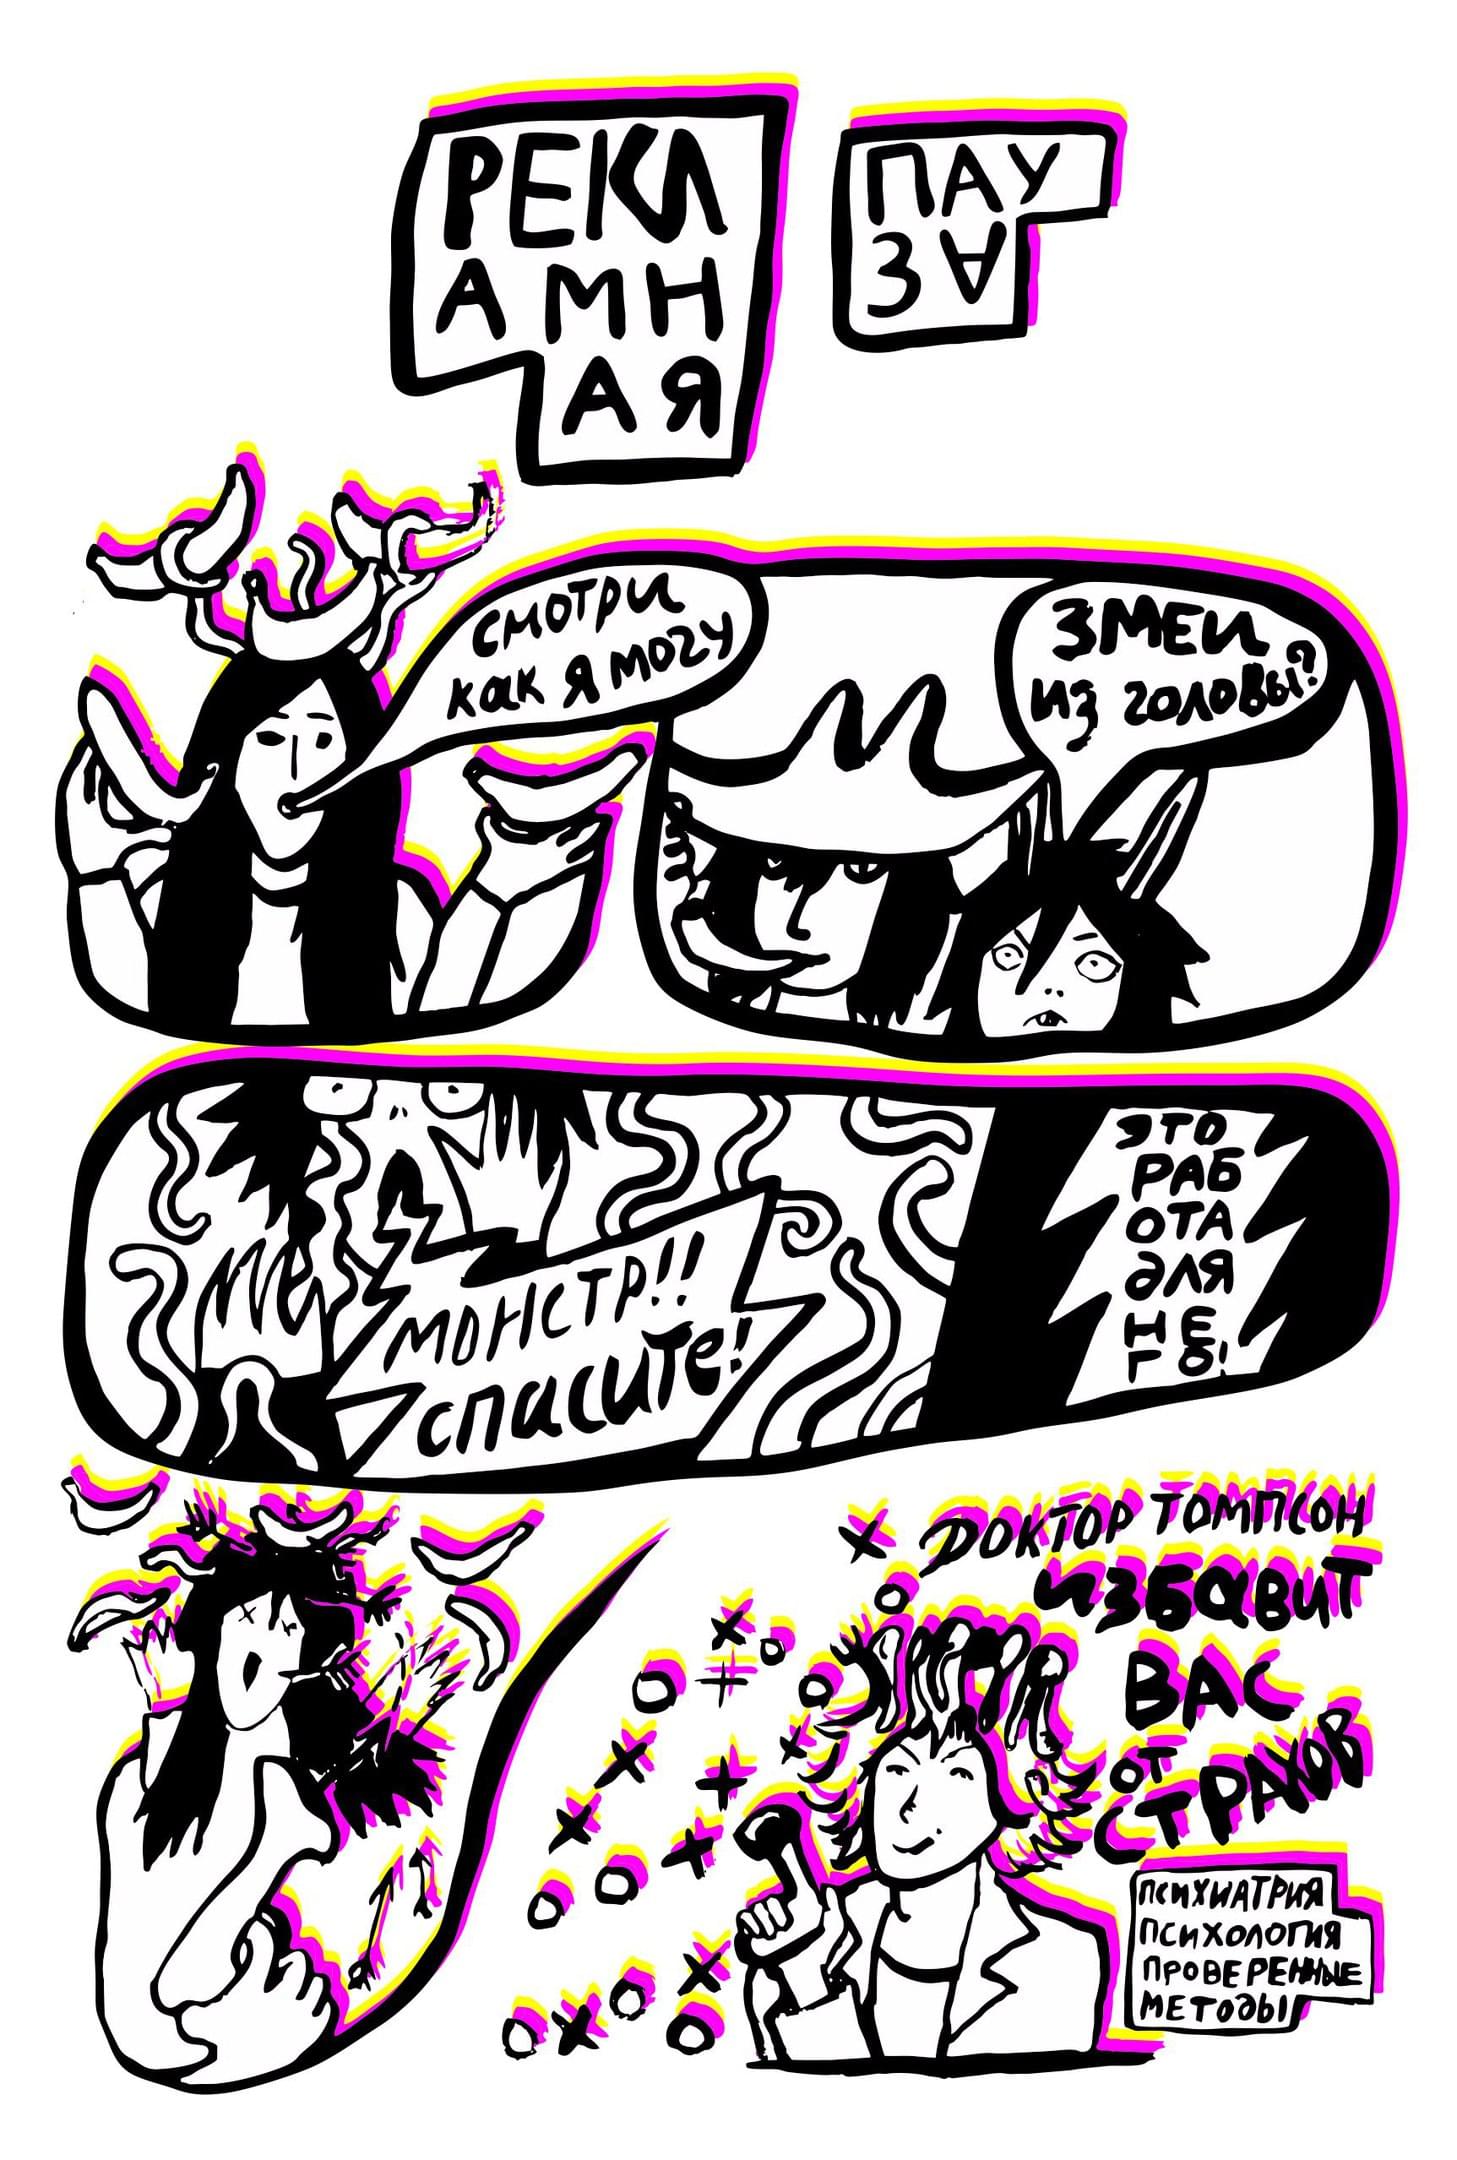 РЕКЛ
АМН
АЯ
ПАУ
ЗА
СМОТРИ
как я могу
ЗМЕИ
из головы?
МОНСТР!!
спасите!
ЭТО
РАБ
ОТА
для
НЕ
ГО!
ДОКТОР ТОМПСОН
избавит
ВАС
от
СТРАХОВ
ПСИХИАТРИЯ
ПСИХОЛОГИЯ
ПРОВЕРЕННЫЕ
МЕТОДЫ